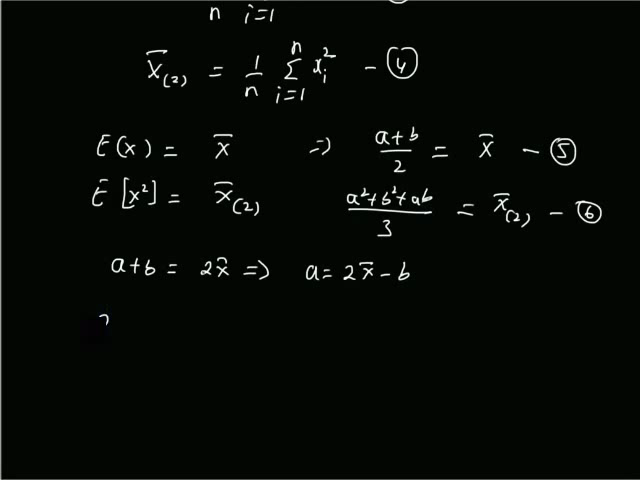 n i=1
X̄(2) = 1/n Σ_{i=1}^{n} x_i² - ④
E(x) = x̄ => (a+b)/2 = x̄ - ⑤
E[x²] = x̄(2) (a²+b²+ab)/3 = x̄(2) - ⑥
a+b = 2x̄ => a = 2x̄ - b